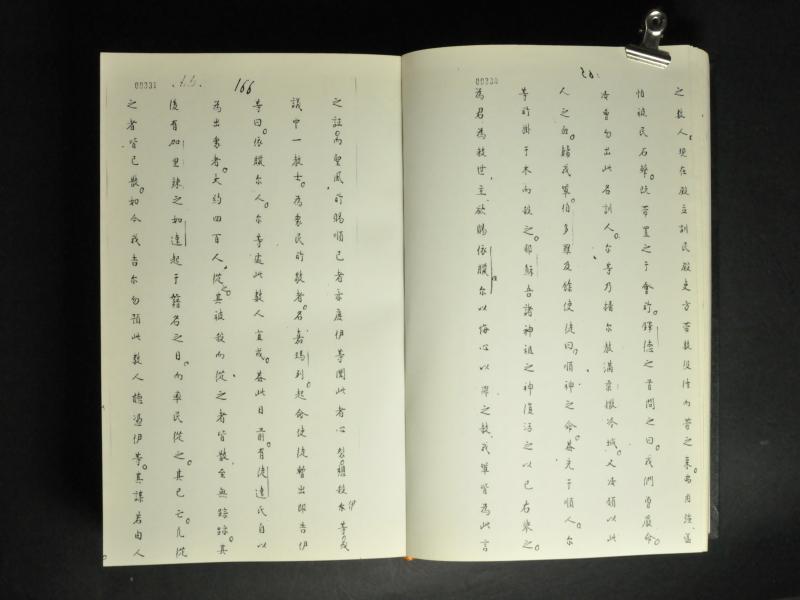 之數人。現在殿立訓民殿吏方苦教役往而苦之來。尚用強逼
怕被民石卒。既苦置之于會所。鐸德之首問之曰。我們曾嚴命
汝曹勿出此名訓人。尔等乃播尔教滿柔撒冷城。又汝領以此
人之血歸我輩。伯多羅及餘使徒曰。順神之命甚先于順人。尔
等所掛于木而殺之耶穌吾諸神祖之神復活之以己右舉之。
為君為救世主欲賜依臘尔以悔心以罪之赦我輩皆為此言
00331
166
之証。而聖風所賜順己者亦應伊等聞此者心怒想殺伊等。或
議中一教士。為眾民所敬者。名嘉瑪列。起命使徒暫出即告伊
等曰。依臘尔人。尔等處此數人宜戒。蓋此日前有徒達氏自以
為出眾者。大約四百人從之。其被殺而從之者皆散至無跡踪。其
後有加里辣之如達起于籍名之日。而率民從之。其已亡。凡從
之者皆已散。如今我告尔勿預此數人據憑伊等。其謀若由人